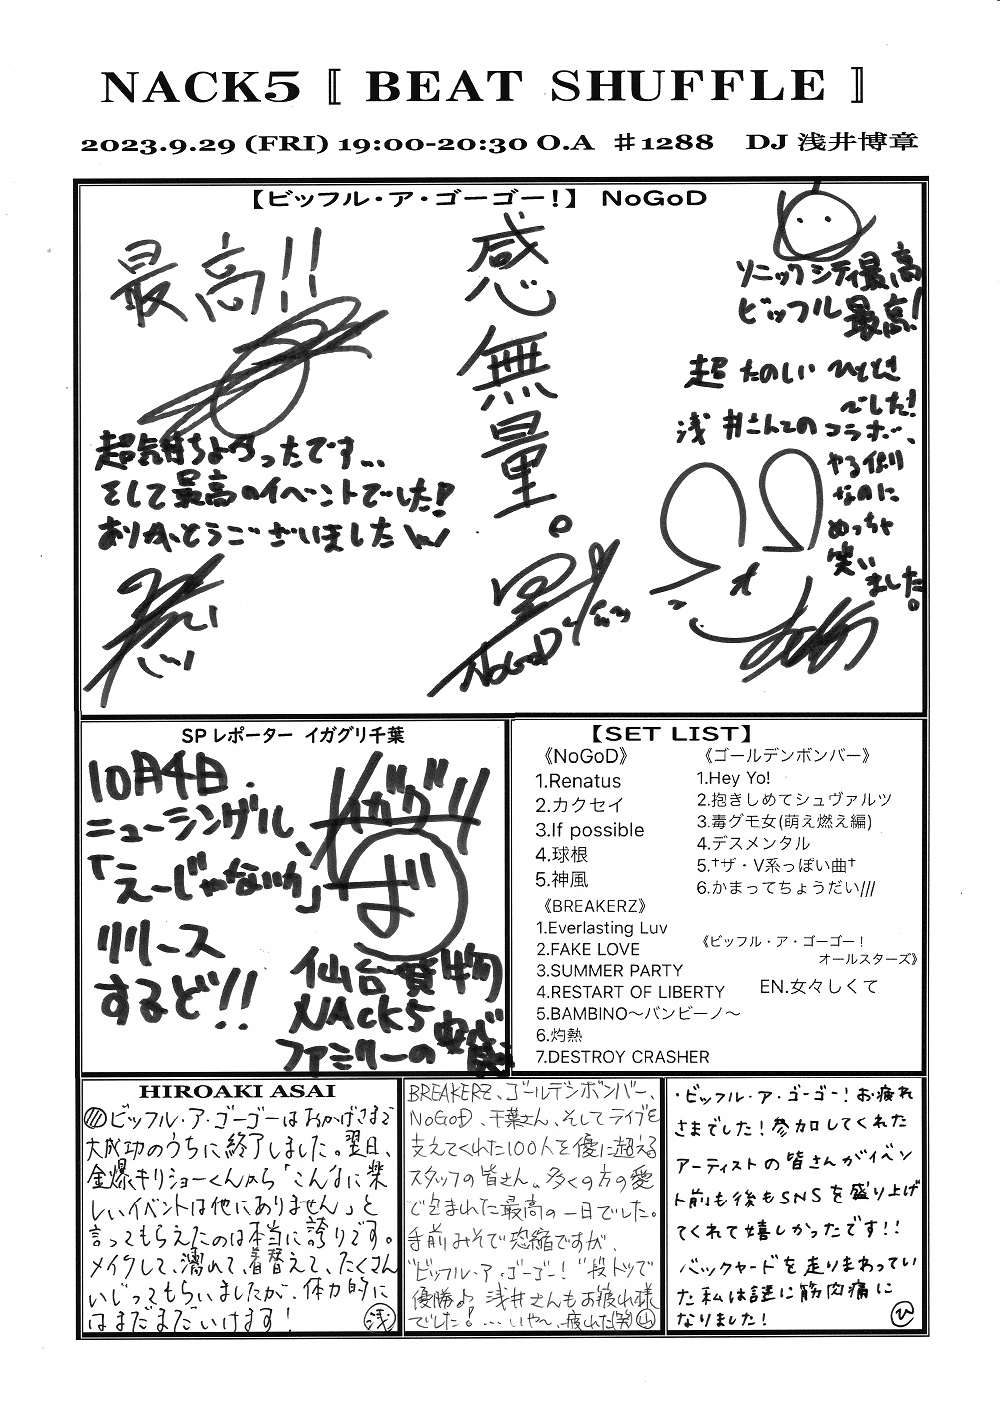 NACK5『 BEAT SHUFFLE 』
2023.9.29 (FRI) 19:00-20:30 O.A ♯1288 DJ 浅井博章
【ビッフル・ア・ゴーゴー!】 NoGoD
最高!!
超気持ちよかったです...
そして最高のイベントでした!
ありがとうございましたw
感無量。
NoGoD
ソニックシティ最高
ビッフル最高!
超たのしいひととき
でした!
浅井さんとのコラボ、
やる側
なのに
めっちゃ
笑い
ました。
SPレポーター イガグリ千葉
10月4日、
ニューシングル、
「えーじゃないか」
リリース
するど!!
イガグリ
ば
仙台貨物
NACK5
ファミリーの
【SET LIST】
《NoGoD》
1.Renatus
2.カクセイ
3.If possible
4.球根
5.神風
《BREAKERZ》
1.Everlasting Luv
2.FAKE LOVE
3.SUMMER PARTY
4.RESTART OF LIBERTY
5.BAMBINO〜バンビーノ〜
6.灼熱
7.DESTROY CRASHER
《ゴールデンボンバー》
1.Hey Yo!
2.抱きしめてシュヴァルツ
3.毒グモ女(萌え燃え編)
4.デスメンタル
5.†ザ・V系っぽい曲†
6.かまってちょうだい///
《ビッフル・ア・ゴーゴー!
オールスターズ》
EN.女々しくて
HIROAKI ASAI
ビッフル・ア・ゴーゴーはおかげさまで
大成功のうちに終了しました。翌日、
金爆キリショーくんから「こんなに楽
しいイベントは他にありません」と
言ってもらえたのは本当に誇りです。
メイクして、濡れて、着替えて、たくさん
いじってもらいましたが、体力的に
はまだまだいけます! 浅
BREAKERZ、ゴールデンボンバー、
NoGoD、千葉さん、そしてライブを
支えてくれた100人を優に超える
スタッフの皆さん。多くの方の愛
で包まれた最高の一日でした。
手前みそで恐縮ですが、
"ビッフル・ア・ゴーゴー!"段トツで
優勝♪ 浅井さんもお疲れ様
でした!...いや〜、疲れた(笑) 山
・ビッフル・ア・ゴーゴー!お疲れ
さまでした!参加してくれた
アーティストの皆さんがイベン
ト前も後もSNSを盛り上げ
てくれて嬉しかったです!!
バックヤードを走りまわってい
た私は謎に筋肉痛に
なりました! ひ